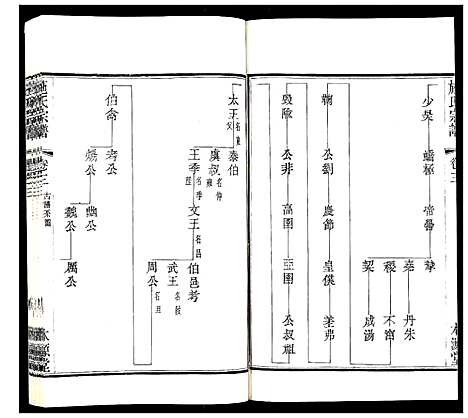 施氏宗譜 卷三
少昊 蟜極 帝嚳 摯
堯 丹朱
稷 不窋
契 成湯
鞠 公劉 慶節 皇僕 差弗
毀隃 公非 高圉 亞圉 公叔祖
太王 名亶父 泰伯
虞叔 名仲雍
王季 名季 文王 名昌 伯邑考
武王 名發
周公 名旦
伯禽 考公
煬公 幽公
魏公 厲公
施氏宗譜 卷三